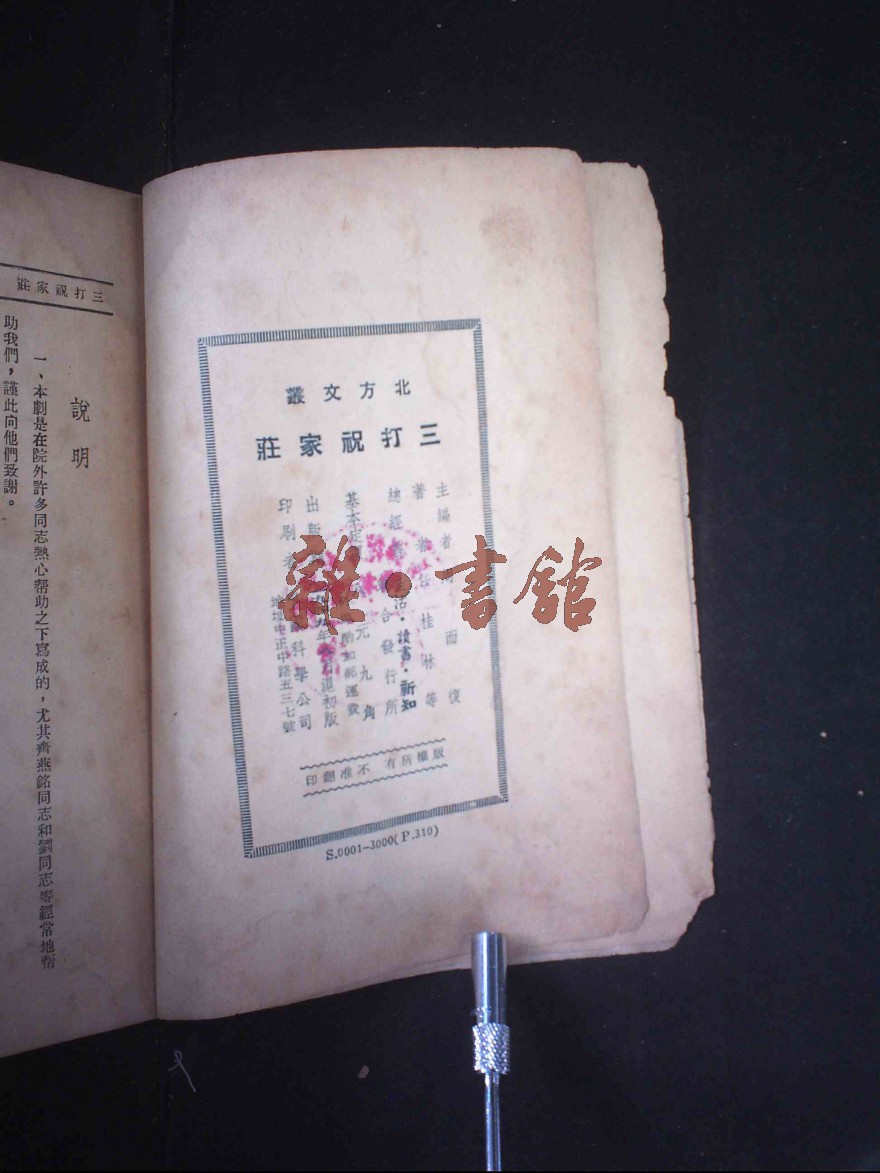 三打祝家莊
說明
一、本劇是在院外許多同志熱心帮助之下寫成的，尤其齊燕銘同志和劉同志等經常地幫
助我們，謹此向他們致謝。
北方文叢
三打祝家莊
主編者 而復
著者 任桂林等
總經 生活·讀書·新知 合發行所
基本定 元九角
酌加郵運費
出版 年 滬初版
印刷者 科學公司
中正中路五三七號
版權所有 不准翻印
S.0001-3000(P.310)
雜·書館